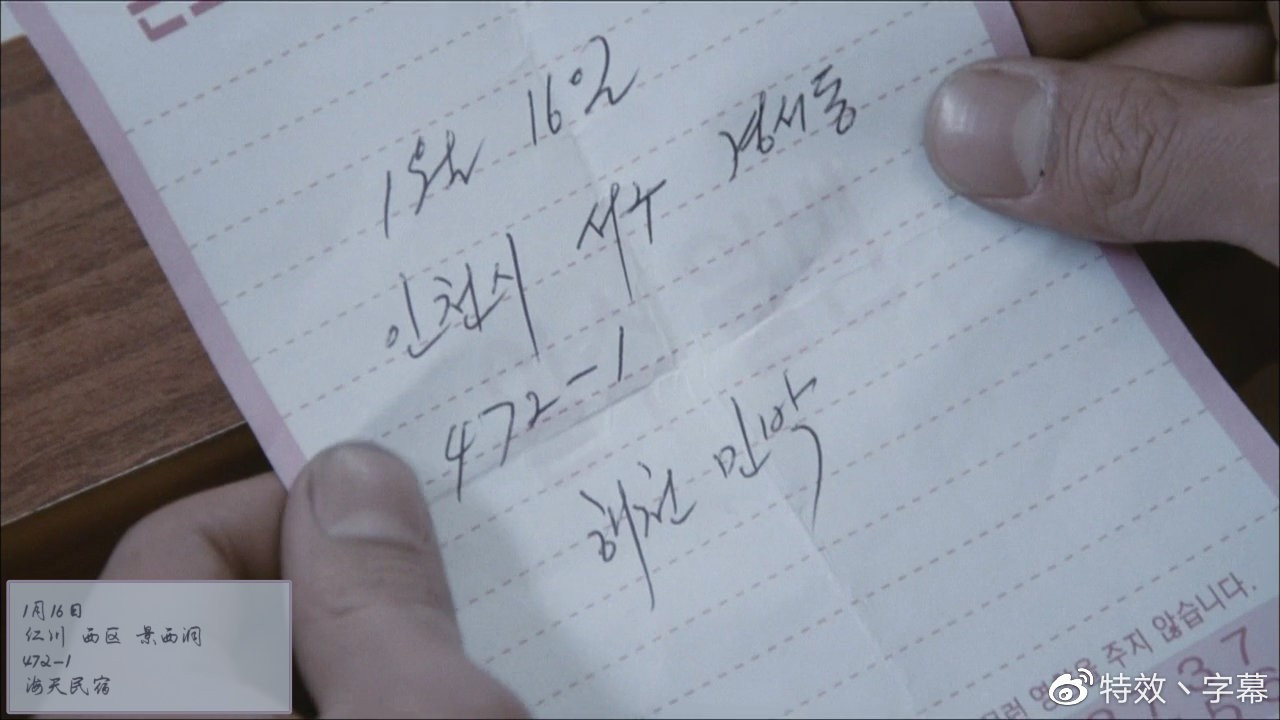 1월 16일
인천시 서구 경서동
472-1
해천 민박
주지 않습니다.
3 7
1月16日
仁川 西区 景西洞
472-1
海天民宿
特效丶字幕